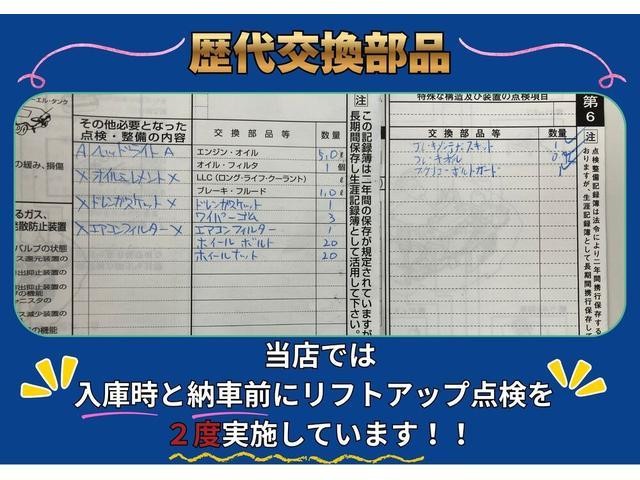 歴代交換部品
エル・タンク
の緩み、損傷
るガス、
発散防止装置
バルブの状態
ス還元装置の
出抑止装置の
の機能
ャニスタの
ス減少装置の
の機能
その他必要となった
点検・整備の内容
A ヘッドライト A
X オイルエレメント X
X ドレンガスケット X
X エアコンフィルター X
交換部品等 数量
エンジン・オイル 5.0 ℓ
オイル・フィルタ 1 個
LLC(ロング・ライフ・クーラント) ℓ
ブレーキ・フルード 1.0 ℓ
ドレンガスケット 1
ワイパーゴム 3
エアコンフィルター 1
ホイールボルト 20
ホイールナット 20
注 この記録簿は二年間の保存が規定されていますが
長期間保存し生涯記録簿として活用して下さい。
特殊な構造及び装置の点検項目
交換部品等 数量
第6
注 点検整備記録簿は法令により二年間携行保存する
おりますが、生涯記録簿として長期間携行保存して
当店では
入庫時と納車前にリフトアップ点検を
２度実施しています！！